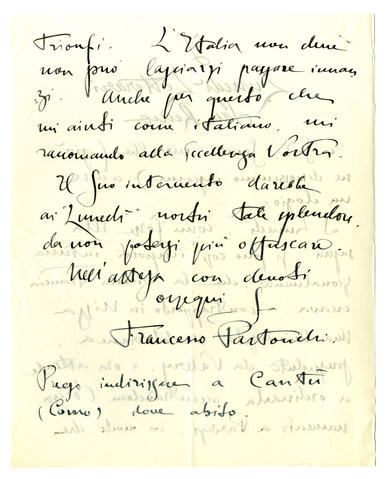 Trionfi. L'Italia non deve
non può lasciarsi passare innan
zi. Anche per questo che
mi aiuti come italiano, mi
raccomando alla Eccellenza Vostra.
Il Suo intervento darebbe
ai "Lunedì" nostri tale splendore
da non potersi più offuscare.
Nell'attesa con devoti
ossequi
Francesco Pastonchi.
Prego indirizzare a Cantù
(Como) dove abito.